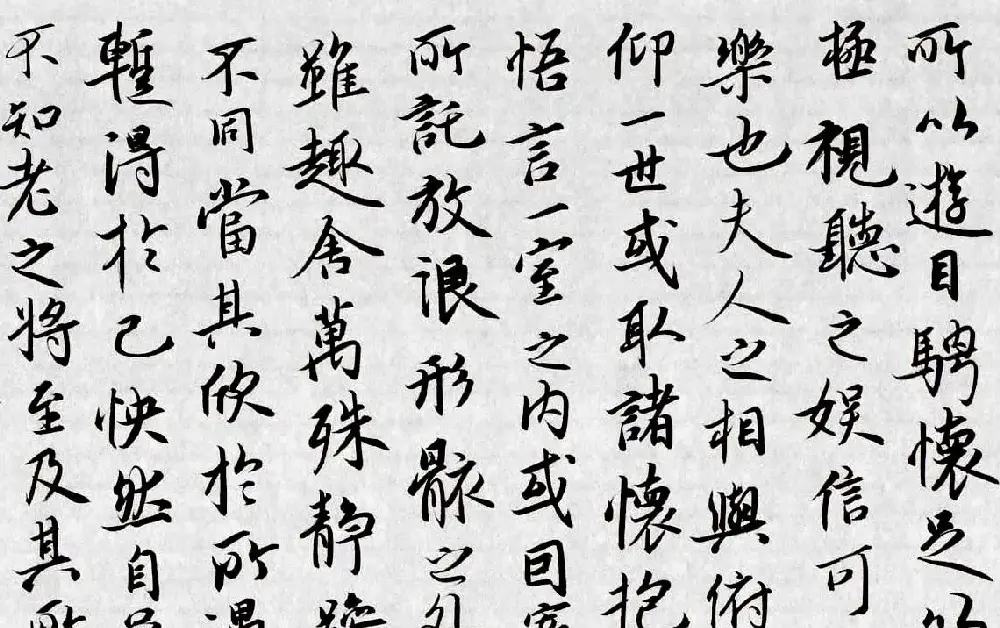 所以遊目騁懷足以
極視聽之娛信可
樂也夫人之相與俯
仰一世或取諸懷抱
悟言一室之內或因寄
所託放浪形骸之外
雖趣舍萬殊静躁
不同當其欣於所遇
暫得於己快然自足
不知老之將至及其所